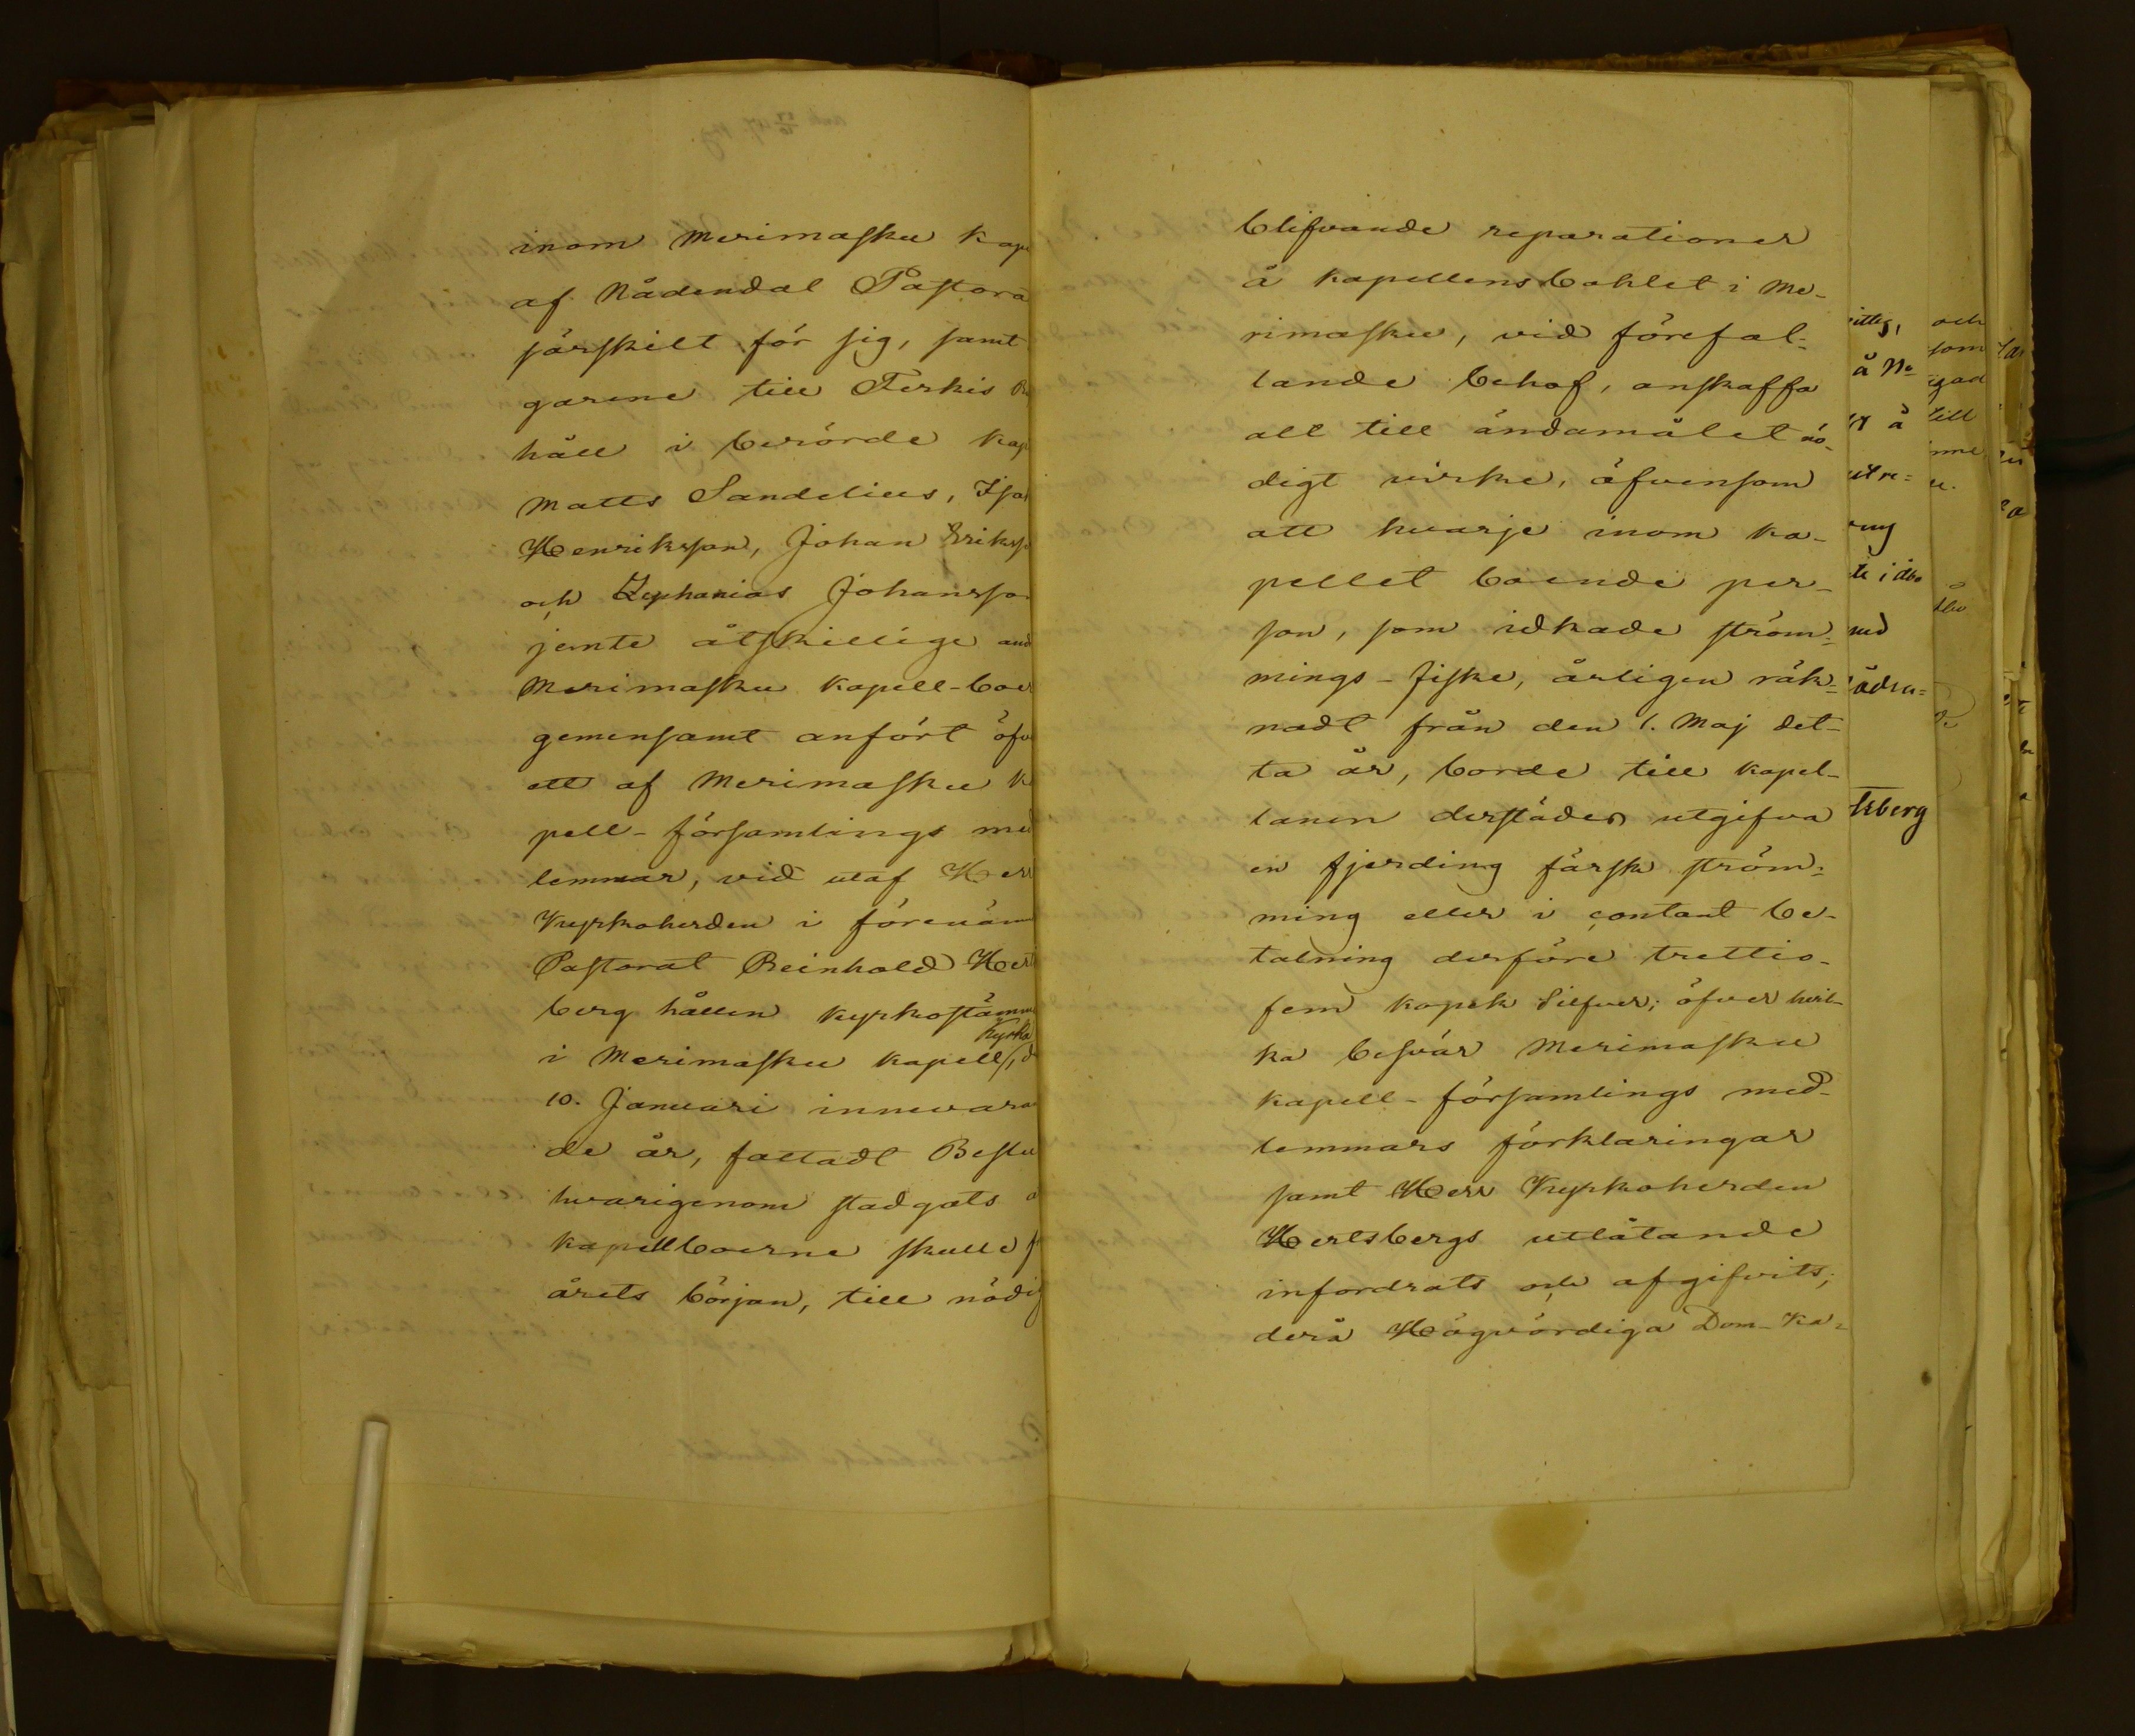 inom Merimasku Kape
af Nådendal Pastora
särskilt för sig, samt
garene till Ferkis
håll i berörde Kap
Matts Sandelius, Isa
Henriksson, Johan Erikss
och Zephanias Johansso
jemte åtskillige and
Merimasku Kapell-boer
gemensamt anfört öfv
ett af Merimasku K
pell-församlings med
lemmar, vid utaf Herr
Kyrkoherden i förenäm
Pastorat Reinhold Herl
berg hållen Kyrkostämm
Kyrka
i Merimasku Kapell, d
10. Januari innevaran
de år, fattadt Beslu
hvarigenom stadgats a
kapellboerne skulle f
årets början, till nödig
blifvande reparationer
å Kapellensbohlet i Me-
rimasku, vid förefal-
lande behof, anskaffa
allt till ändamålet nö-
digt virke, äfvensom
att hvarje inom ka-
pellet boende per-
son, som idkade ström-
mings-fiske, årligen räk-
nadt från den 1. Maj det-
ta år, borde till Kapel-
lanen derstädes utgifva
en fjerding färsk ström-
ming eller i contant be-
talning derföre trettio-
fem Kopek Silfver; öfver hvil-
ka besvär Merimasku
Kapell-församlings med-
lemmars förklaringar
samt Herr Kyrkoherden
Herlsbergs utlåtande
infordrats och afgifvits;
derå Högvördiga Dom-Ka-
å No
utre-
lsberg
och
som
till